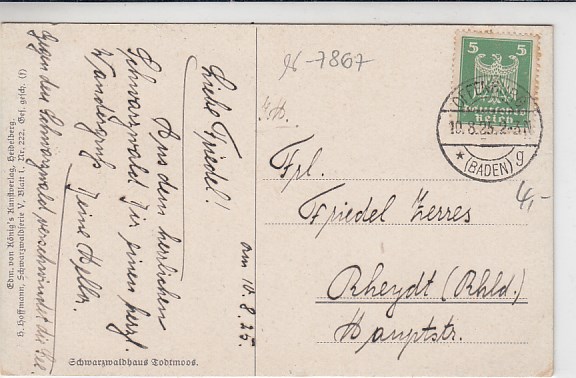 Edm. von König's Kunstverlag, Heidelberg.
H. Hoffmann, Schwarzwaldserie V, Blatt 1, Nr. 222. Ges. gesch. (f)
am 10.8.25.
Liebe Friedel!
Aus dem herrlichen
Schwarzwald Dir einen herzl.
Wandergruß
Deine Hella.
Gegen den Schwarzwald verschwindet die See.
Schwarzwaldhaus Todtmoos.
-7867
5 5
Deutsches
Reich
10.8.25.
(BADEN) g
4,-
Frl.
Friedel Zerres
Rheydt (Rhld.)
Hauptstr.